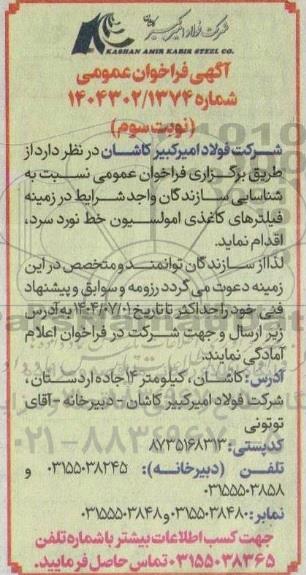 شرکت فولاد امیرکبیر کاشان
KASHAN AMIR KABIR STEEL CO.
آگهی فراخوان عمومی
شماره ۱۴۰۴۳۰۲/۱۳۷۴
(نوبت سوم)
شرکت فولاد امیرکبیر کاشان در نظر دارد از
طریق برگزاری فراخوان عمومی نسبت به
شناسایی سازندگان واجد شرایط در زمینه
فیلترهای کاغذی امولسیون خط نورد سرد،
اقدام نماید.
لذا از سازندگان توانمند و متخصص در این
زمینه دعوت می گردد رزومه و سوابق و پیشنهاد
فنی خود را حداکثر تا تاریخ ۱۴۰۴/۰۷/۰۱ به آدرس
زیر ارسال و جهت شرکت در فراخوان اعلام
آمادگی نمایند.
آدرس: کاشان ، کیلومتر ۱۴ جاده اردستان ،
شرکت فولاد امیرکبیر کاشان - دبیرخانه - آقای
توتونی
کدپستی: ۸۷۳۵۱۶۸۳۱۳
تلفن (دبیرخانه): ۰۳۱۵۵۰۳۸۲۴۵ و
۰۳۱۵۵۵۰۳۸۵۸
نمابر: ۰۳۱۵۵۰۳۸۴۸۰ و ۰۳۱۵۵۵۰۳۸۴۸
جهت کسب اطلاعات بیشتر با شماره تلفن
۰۳۱۵۵۰۳۸۳۶۵ تماس حاصل فرمایید.
۰۲۱-۸۸۳۴۹۶۷۰